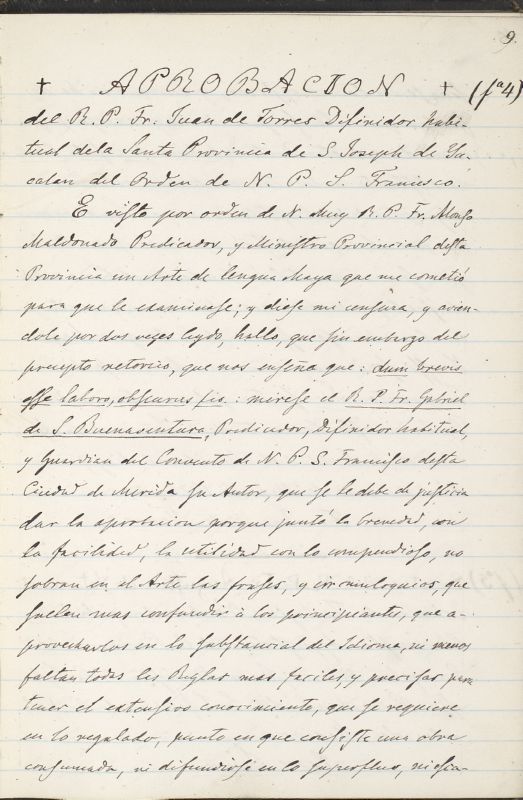 9.
† APROBACION † (fª4)
del R. P. Fr. Juan de Torres Difinidor habi-
tual dela Santa Provincia de S. Joseph de Yu-
catan del Orden de N. P. S. Francisco.
E visto por orden de N. Muy R. P. Fr. Alonso
Maldonado Predicador, y Ministro Provincial desta
Provincia un Arte de lengua Maya que me cometió
para que le examinase; y diese mi censura, y avien-
dole por dos veces leydo, hallo, que sin embargo del
precepto retorico, que nos enseña que: dum brevis
esse laboro, obscurus fio: merese el R. P. Fr. Gabriel
de S. Buenaventura, Predicador, Difinidor habitual,
y Guardian del Convento de N. P. S. Francisco desta
Ciudad de Merida su Autor, que se le debe de justicia
dar la aprobacion porque juntó la brevedad, con
la facilidad, la utilidad con lo compendioso, no
sobran en el Arte las frases, y circunloquios, que
suelen mas confundir à los principiantes, que a-
provecharlos en lo substancial del Idioma, ni menos
faltan todas las Reglas mas faciles, y precisas para
tener el extensivo conocimiento, que se requiere
en lo regulado, punto en que consiste una obra
consumada, ni difundirse en lo superfluo, ni esca-